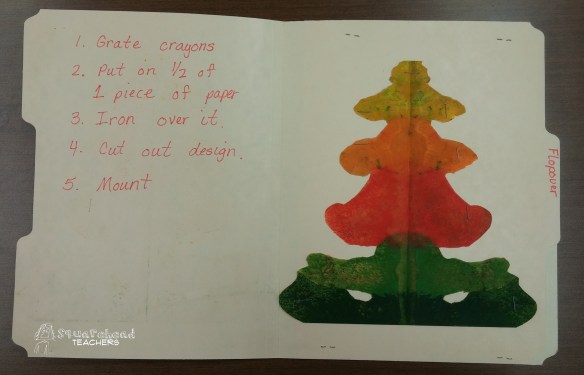 1. Grate crayons
2. Put on 1/2 of
1 piece of paper
3. Iron over it.
4. Cut out design.
5. Mount
Flopover
Squarehead
TEACHERS